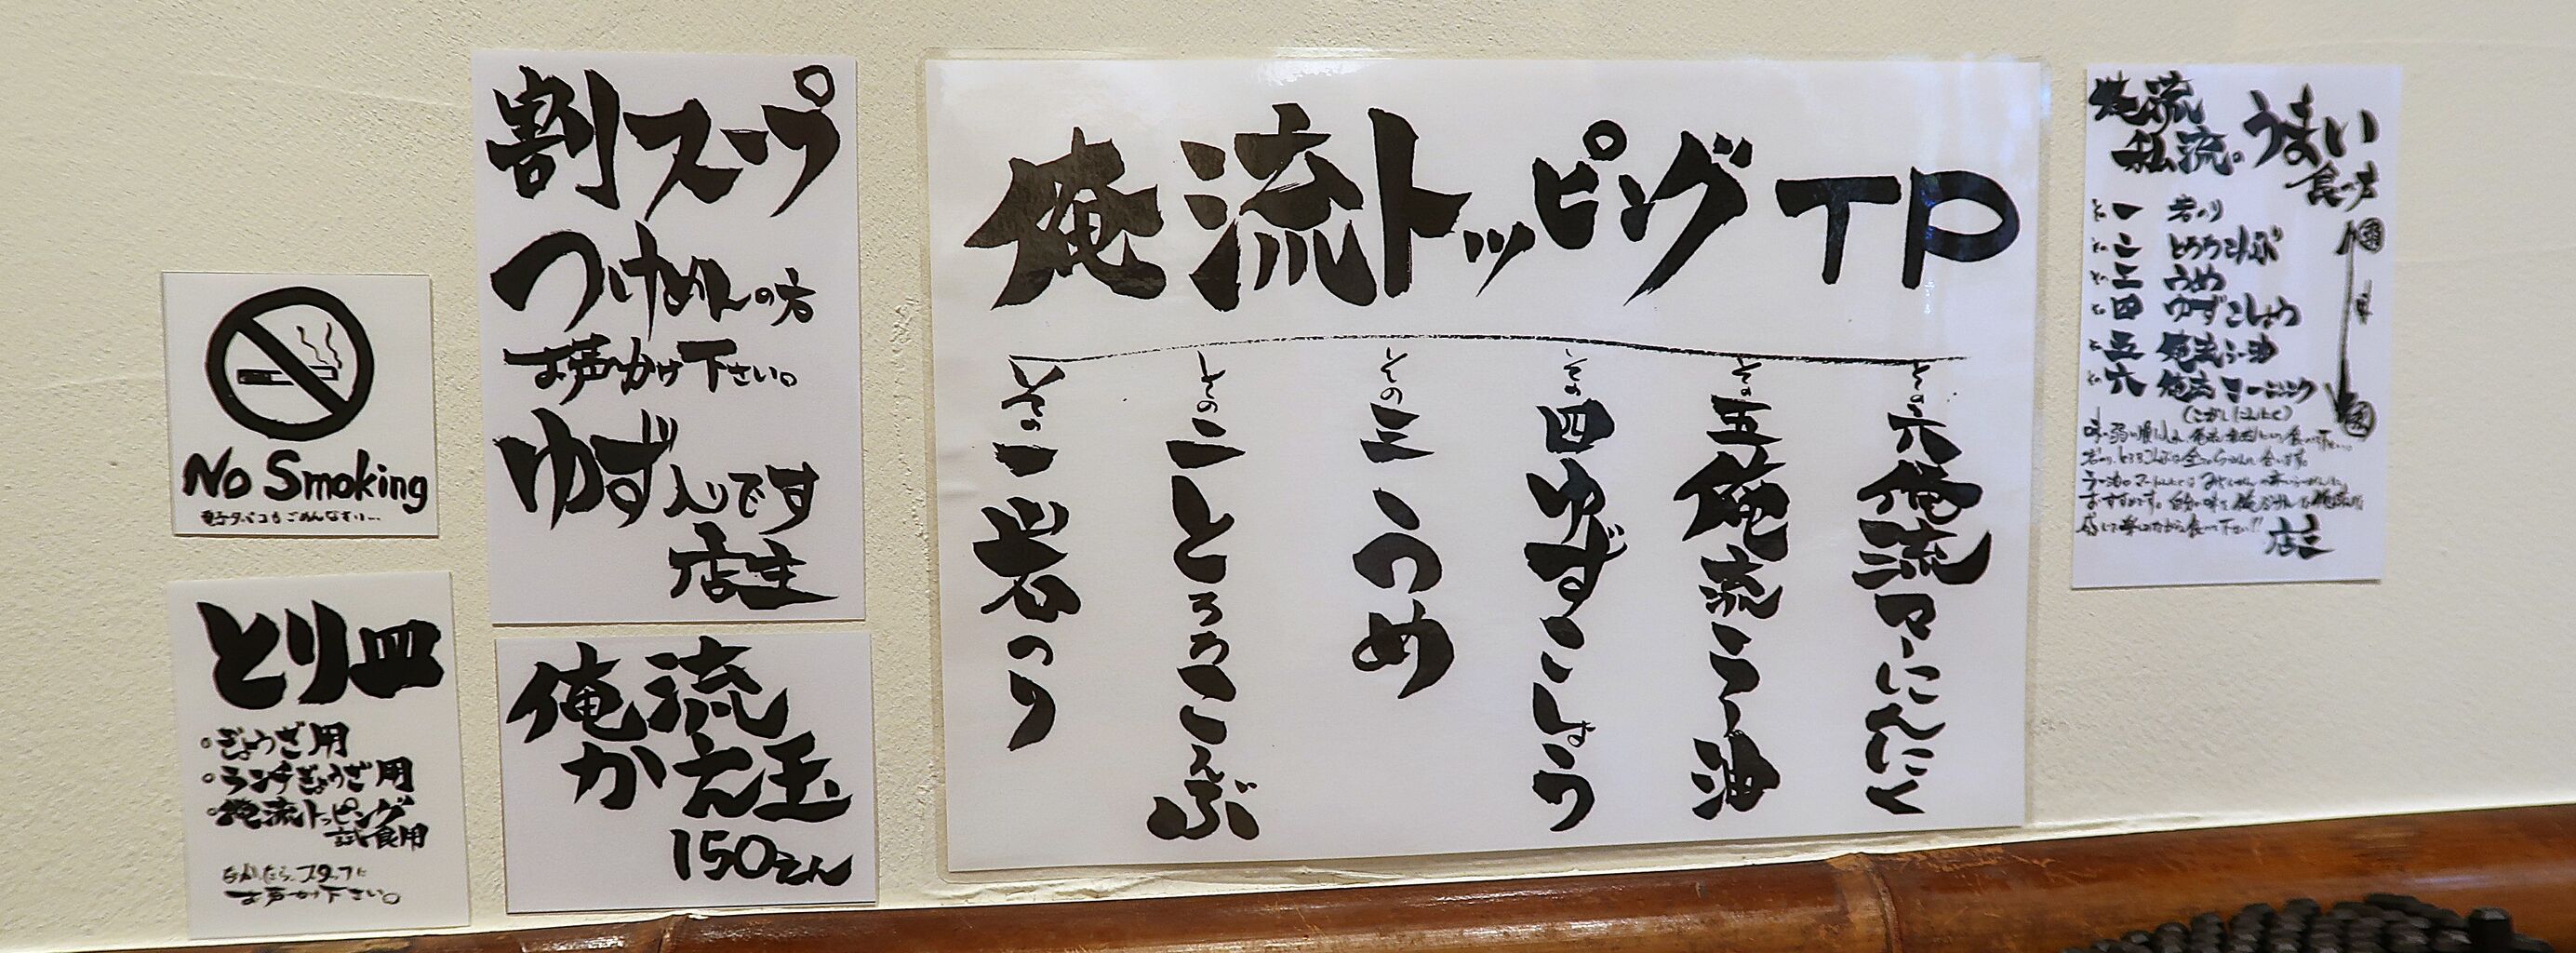 No Smoking
電子タバコもごめんなさい…
とり皿
・ぎょうざ用
・ランチぎょうざ用
・俺流トッピング
試食用
なかったら、スタッフに
お声かけ下さい。
割スープ
つけめんの方
お声かけ下さい。
ゆず入りです
店主
俺流
かえ玉
150えん
俺流トッピングTP
その一 岩のり
その二 とろろこんぶ
その三 うめ
その四 ゆずこしょう
その五 俺流らー油
その六 俺流マーにんにく
俺流
私流。うまい
食べ方
その一 岩のり
その二 とろろこんぶ
その三 うめ
その四 ゆずこしょう
その五 俺流らー油
その六 俺流
(こがしにんにく)
おすすめです。
店主